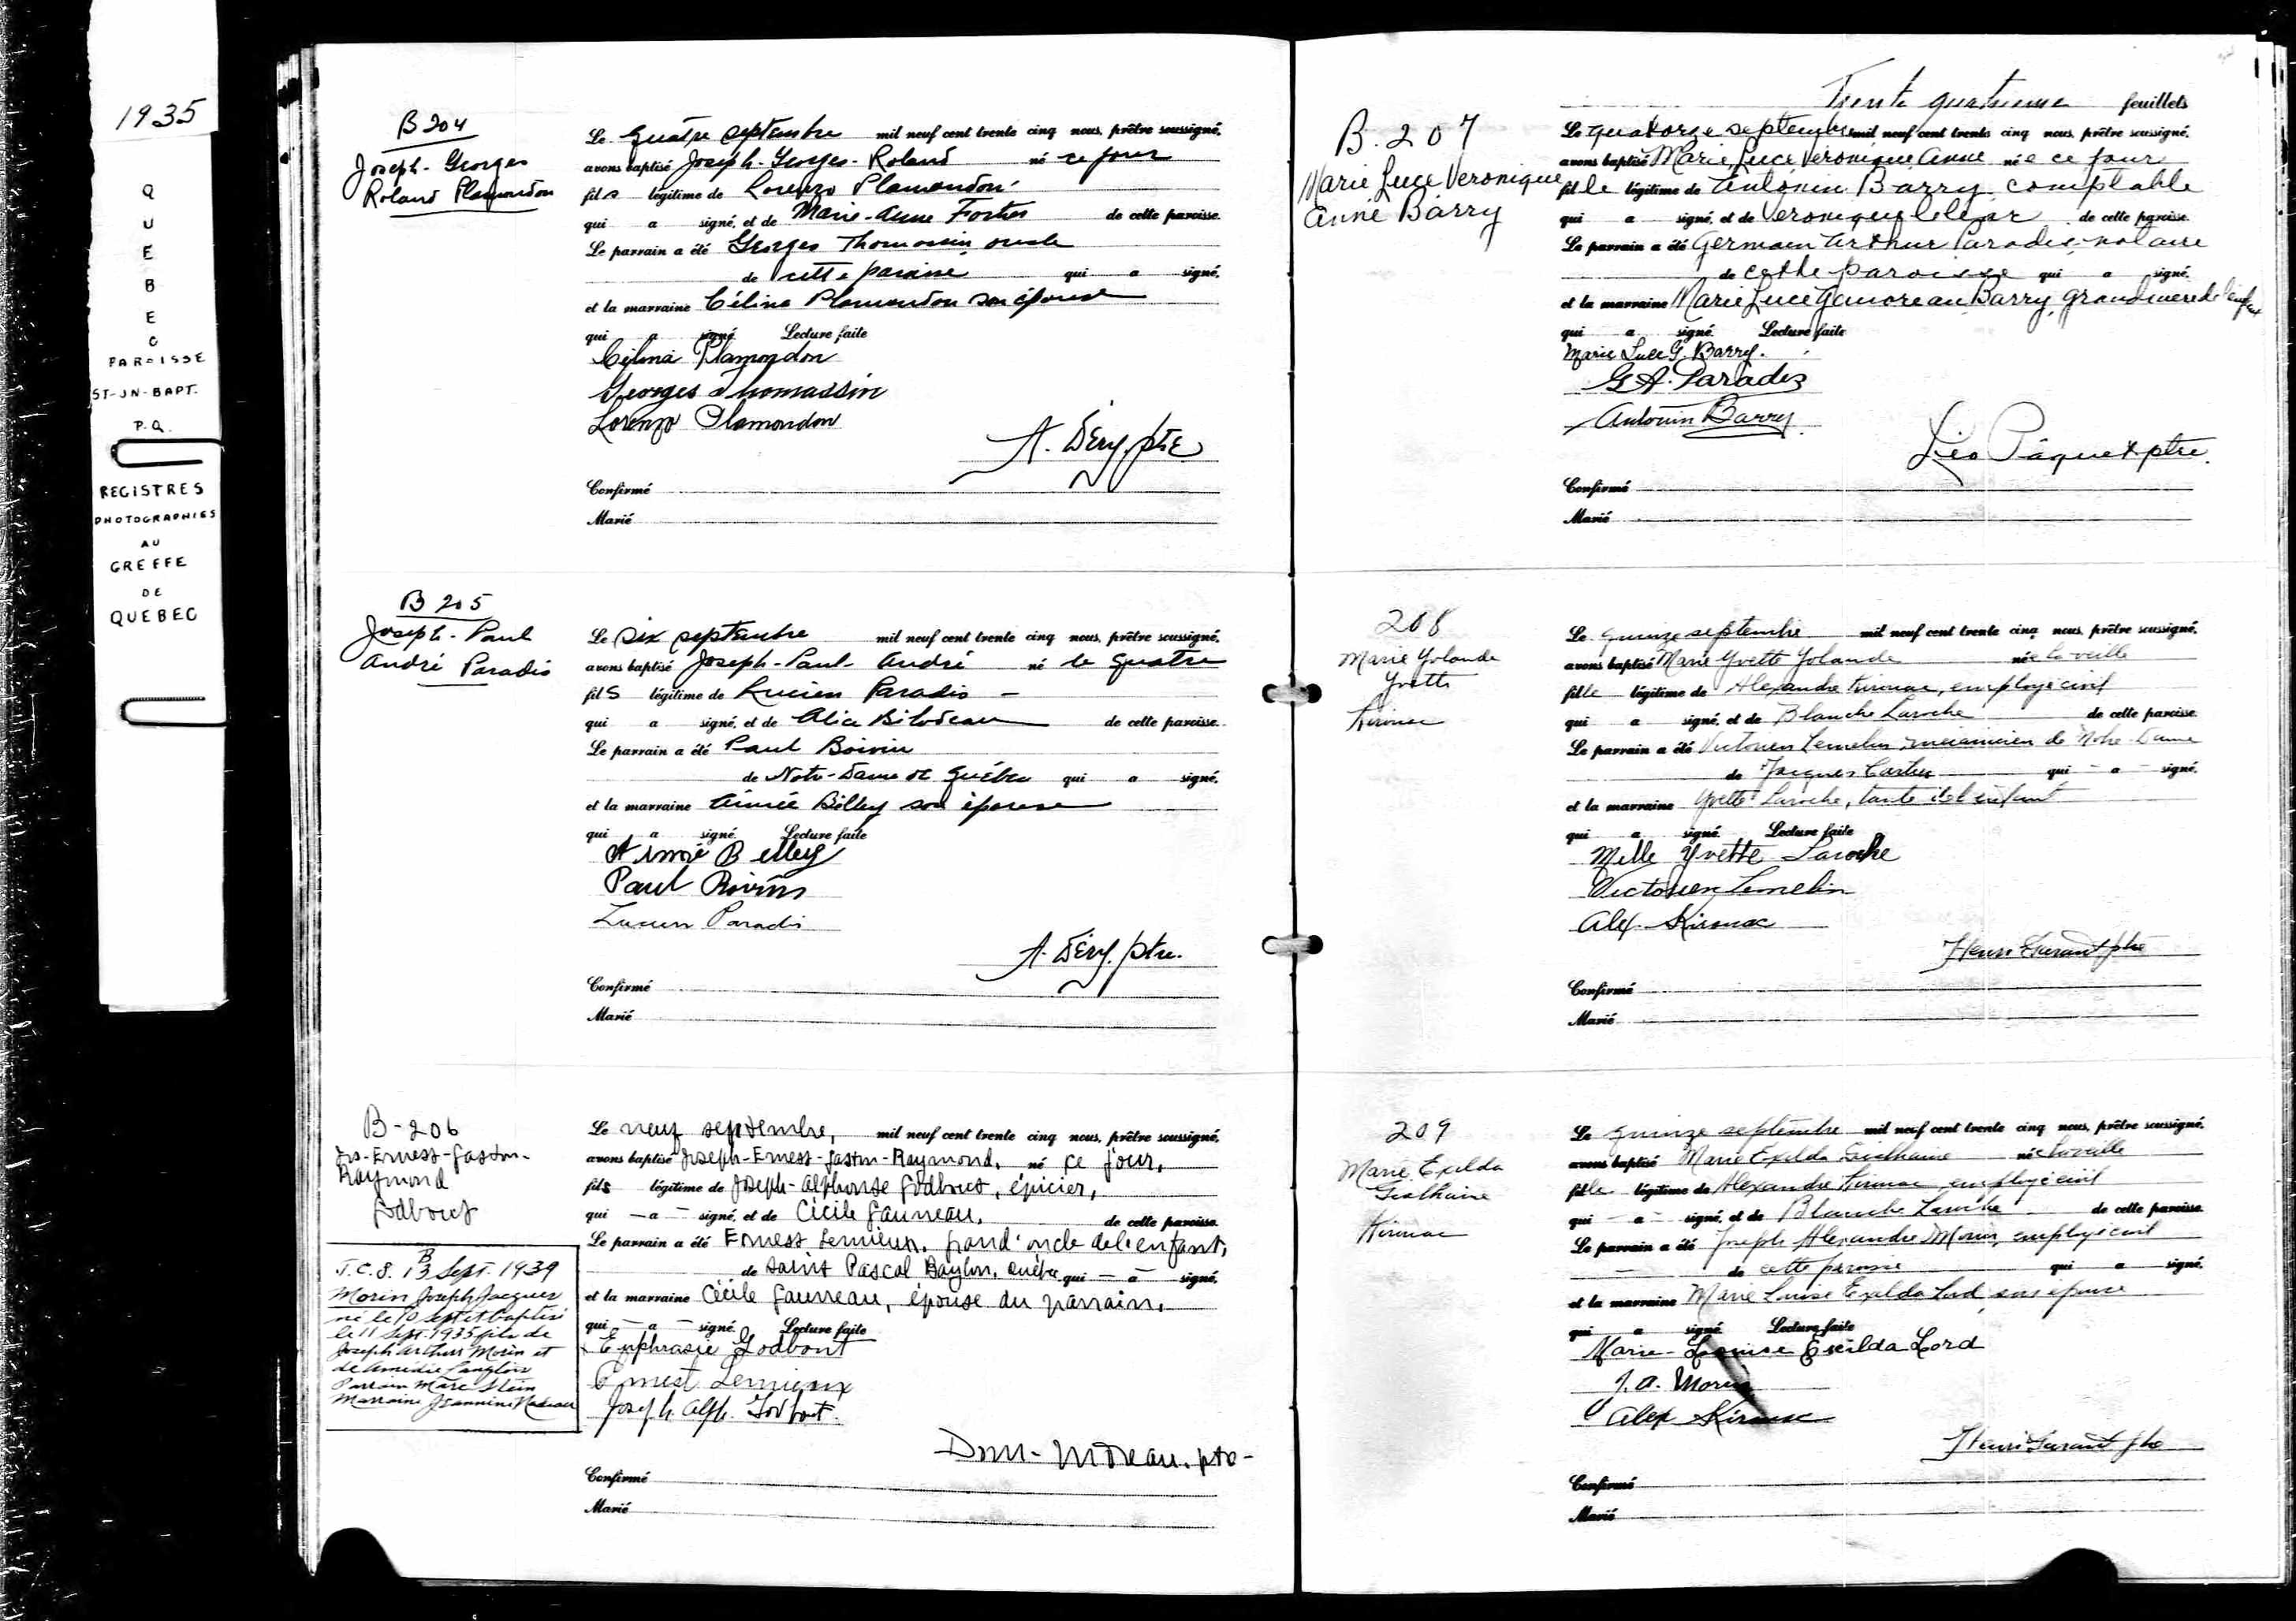 1935
QUEBEC
PAROISSE
ST-JN-BAPT.
P.Q.
REGISTRES
PHOTOGRAPHIES
AU
GREFFE
DE
QUEBEC
B 204
Joseph-Georges
Roland Plamondon
Le quatre septembre mil neuf cent trente cinq nous, prêtre soussigné,
avons baptisé Joseph-Georges-Roland né ce jour
fils légitime de Lorenzo Plamondon
qui a signé, et de Marie-Anne Fortier de cette paroisse.
Le parrain a été Georges Thomassin oncle
de cette paroisse qui a signé,
et la marraine Célina Plamondon son épouse
qui a signé Lecture faite
Célina Plamondon
Georges Thomassin
Lorenzo Plamondon
A. Déry, ptre
Confirmé
Marié
B 205
Joseph-Paul
André Paradis
Le six septembre mil neuf cent trente cinq nous, prêtre soussigné,
avons baptisé Joseph-Paul-André né le quatre
fils légitime de Lucien Paradis
qui a signé, et de Alice Bilodeau de cette paroisse.
Le parrain a été Paul Boivin
de Notre-Dame de Québec qui a signé,
et la marraine Aimée Billey son épouse
qui a signé Lecture faite
Aimé Billey
Paul Boivin
Lucien Paradis
A. Déry, ptre.
Confirmé
Marié
B-206
Jos-Ernest-Gaston-
Raymond
Godbout
Le neuf septembre, mil neuf cent trente cinq nous, prêtre soussigné,
avons baptisé Joseph-Ernest-Gaston-Raymond, né ce jour,
fils légitime de Joseph-Alphonse Godbout, épicier,
qui - a - signé, et de Cécile Gauneau, de cette paroisse.
Le parrain a été Ernest Lemieux, grand'oncle de l'enfant,
de Saint Pascal Baylon, Québec qui - a - signé,
et la marraine Cécile Gauneau, épouse du parrain,
qui - a - signé Lecture faite
Euphrasie Godbout
Ernest Lemieux
Joseph Alph. Godbout.
ptre-
Confirmé
Marié
B
T.C.8. 13 Sept. 1939
Morin Joseph Jacques
né le 10 sept et baptisé
le 11 Sept. 1935 fils de
Joseph Arthur Morin et
de Amédie Langlois
Parrain Marc Stein
Marraine Jeannine Nadeau
Trente quatrieme feuillets
B. 207
Marie Luce Veronique
Anne Barry
Le quatorze septembre mil neuf cent trente cinq nous, prêtre soussigné,
avons baptisé Marie Luce Veronique Anne née ce jour
fille légitime de Antonin Barry comptable
qui a signé, et de Veronique de cette paroisse.
Le parrain a été Germain Arthur Paradis, notaire
de cette paroisse qui a signé,
et la marraine Marie Luce Gamoreau Barry, grandmere de l'enfant
qui a signé Lecture faite
Marie Luce G. Barry.
G A. Paradis
Antonin Barry
Léo Pâquet ptre.
Confirmé
Marié
208
Marie Yolande
Yvette
Kirouac
Le quinze septembre mil neuf cent trente cinq nous, prêtre soussigné,
avons baptisé Marie Yvette Yolande née la veille
fille légitime de Alexandre Kirouac, employé civil
qui a signé, et de Blanche Laroche de cette paroisse.
Le parrain a été Victorien Lemelin mécanicien de Notre-Dame
de Jacques Cartier qui - a - signé,
et la marraine Yvette Laroche, tante de l'enfant
qui a signé Lecture faite
Melle Yvette Laroche
Victorien Lemelin
Alex. Kirouac
Henri Durant ptre
Confirmé
Marié
209
Marie Exelda
Gislhaine
Kirouac
Le quinze septembre mil neuf cent trente cinq nous, prêtre soussigné,
avons baptisé Marie Exelda Gislhaine née la veille
fille légitime de Alexandre Kirouac, employé civil
qui - a - signé, et de Blanche Laroche de cette paroisse.
Le parrain a été Joseph Alexandre Morin, employé civil
de cette paroisse qui a signé,
et la marraine Marie Louise Exelda Lord, son épouse
qui a signé Lecture faite
Marie-Louise Exilda Lord
J. A. Morin
Alex Kirouac
Henri Durant ptre
Confirmé
Marié